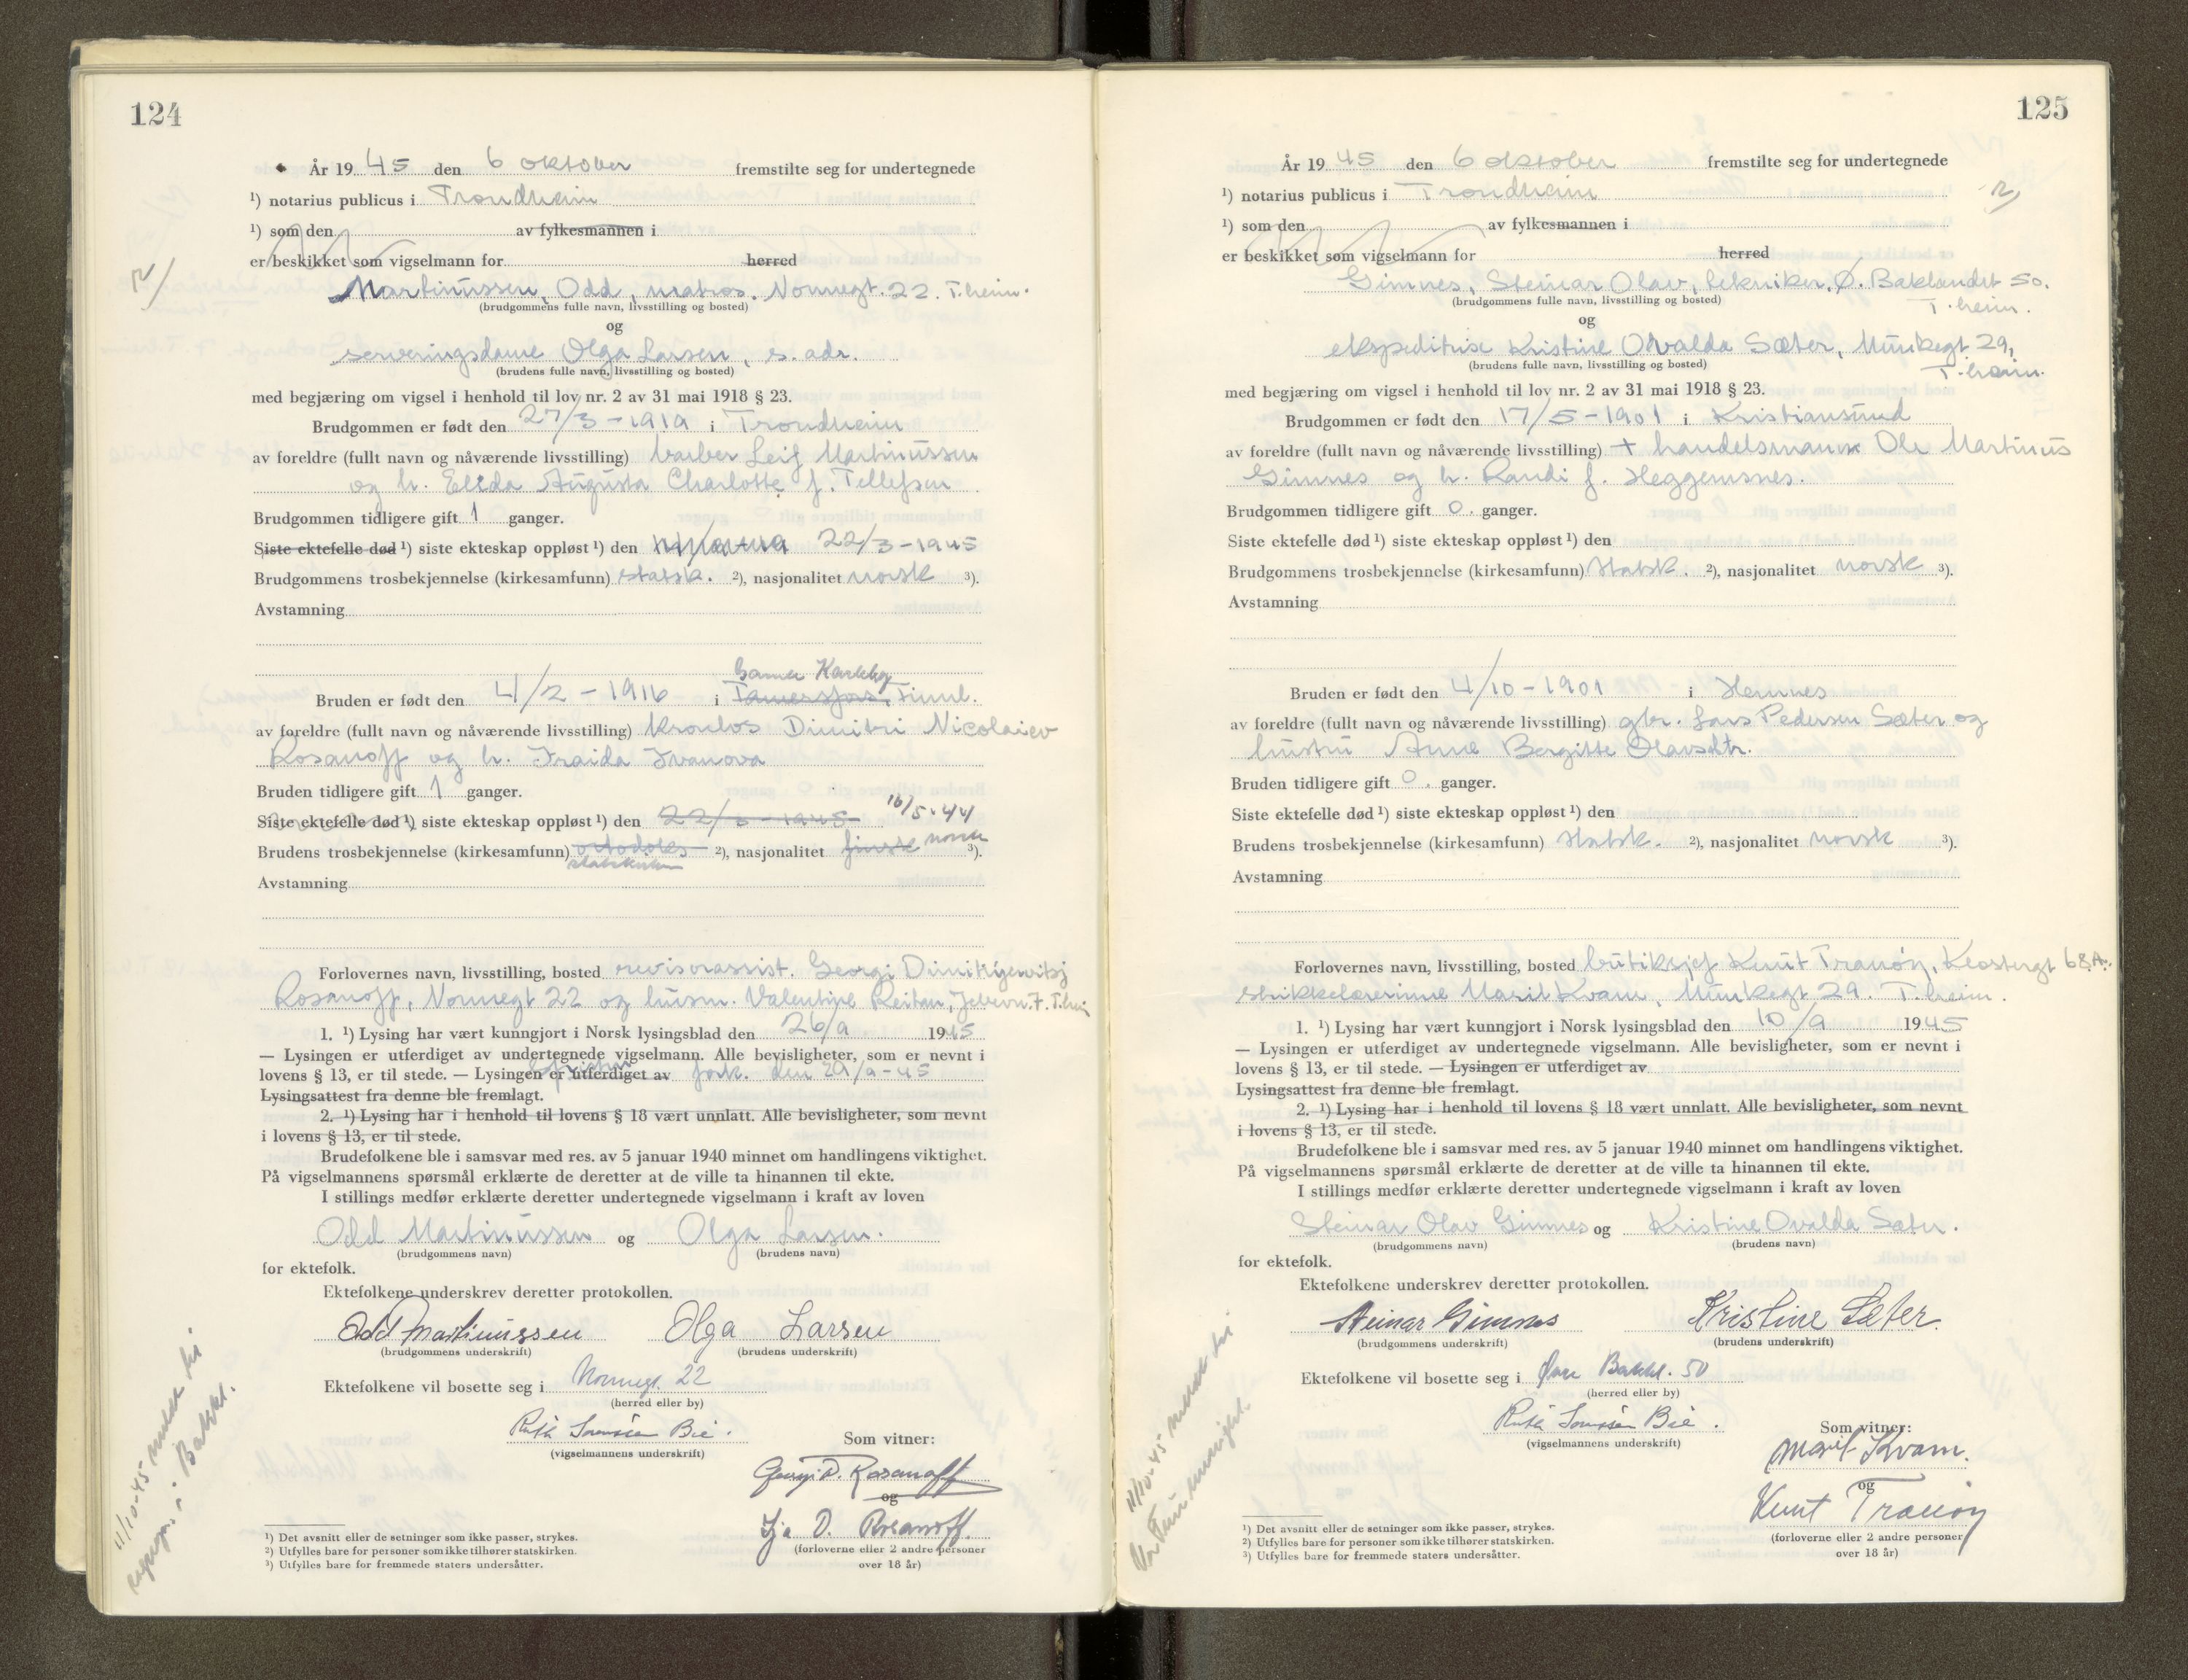 124
År 1945 den 6 oktober fremstilte seg for undertegnede
¹) notarius publicus i Trondheim
¹) som den av fylkesmannen i
er beskikket som vigselmann for herred
Martinussen, Odd, matros, Nonnegt. 22. T.heim.
(brudgommens fulle navn, livsstilling og bosted)
og
serveringsdame Olga Larsen, s. adr.
(brudens fulle navn, livsstilling og bosted)
med begjæring om vigsel i henhold til lov nr. 2 av 31 mai 1918 § 23.
Brudgommen er født den 27/3-1919 i Trondheim
av foreldre (fullt navn og nåværende livsstilling) barber Leif Martinussen
og h. Elida Augusta Charlotte f. Tellefsen
Brudgommen tidligere gift 1 ganger.
Siste ektefelle død ¹) siste ekteskap oppløst ¹) den 22/3-1945
Brudgommens trosbekjennelse (kirkesamfunn) statsk. ²), nasjonalitet norsk ³).
Avstamning
Gamle Karleby
Bruden er født den 4/2-1916 i Tamersfors, Finnl.
av foreldre (fullt navn og nåværende livsstilling) Dimitri Nicolaiev
Rosanoff og h. Iraida Ivanova
Bruden tidligere gift 1 ganger.
Siste ektefelle død ¹) siste ekteskap oppløst ¹) den 22/3-1945 16/5-44
Brudens trosbekjennelse (kirkesamfunn) ortodoks ²), nasjonalitet finsk norsk ³).
statskirken
Avstamning
Forlovernes navn, livsstilling, bosted revisorassist. Georgi Dimitrijevitsj
Rosanoff, Nonnegt 22 og husm. Valentine Reitan, 7. T.heim
1. ¹) Lysing har vært kunngjort i Norsk lysingsblad den 26/9 1945
— Lysingen er utferdiget av undertegnede vigselmann. Alle bevisligheter, som er nevnt i
lovens § 13, er til stede. — Lysingen er utferdiget av fristen fork. den 29/9-45
Lysingsattest fra denne ble fremlagt.
2. ¹) Lysing har i henhold til lovens § 18 vært unnlatt. Alle bevisligheter, som nevnt
i lovens § 13, er til stede.
Brudefolkene ble i samsvar med res. av 5 januar 1940 minnet om handlingens viktighet.
På vigselmannens spørsmål erklærte de deretter at de ville ta hinannen til ekte.
I stillings medfør erklærte deretter undertegnede vigselmann i kraft av loven
Odd Martinussen og Olga Larsen.
(brudgommens navn) (brudens navn)
for ektefolk.
Ektefolkene underskrev deretter protokollen.
Odd Martinussen Olga Larsen
(brudgommens underskrift) (brudens underskrift)
Ektefolkene vil bosette seg i Nonnegt. 22
(herred eller by)
Ruth Sørensen Bie.
(vigselmannens underskrift)
Som vitner:
Georgi D. Rosanoff
og
Ija D. Rosanoff.
(forloverne eller 2 andre personer
over 18 år)
11/10-45 meldt til
i Bakkl.
¹) Det avsnitt eller de setninger som ikke passer, strykes.
²) Utfylles bare for personer som ikke tilhører statskirken.
³) Utfylles bare for fremmede staters undersåtter.
125
År 1945 den 6 oktober fremstilte seg for undertegnede
¹) notarius publicus i Trondheim
¹) som den av fylkesmannen i
er beskikket som vigselmann for herred
Gimnes, Steinar Olav, tekniker, Ø. Baklandet 50.
T.heim.
(brudgommens fulle navn, livsstilling og bosted)
og
ekspeditrise Kristine Ovalda Sæter, Munkegt 29,
T.heim.
(brudens fulle navn, livsstilling og bosted)
med begjæring om vigsel i henhold til lov nr. 2 av 31 mai 1918 § 23.
Brudgommen er født den 17/5-1901 i Kristiansund
av foreldre (fullt navn og nåværende livsstilling) + handelsmann Ole Martinus
Gimnes og h. Randi f. Heggemsnes.
Brudgommen tidligere gift 0. ganger.
Siste ektefelle død ¹) siste ekteskap oppløst ¹) den
Brudgommens trosbekjennelse (kirkesamfunn) Statsk. ²), nasjonalitet norsk ³).
Avstamning
Bruden er født den 4/10-1901 i Hemnes
av foreldre (fullt navn og nåværende livsstilling) gbr. Lars Pedersen Sæter og
hustru Anne Bergitte Olavsdtr.
Bruden tidligere gift 0. ganger.
Siste ektefelle død ¹) siste ekteskap oppløst ¹) den
Brudens trosbekjennelse (kirkesamfunn) Statsk. ²), nasjonalitet norsk ³).
Avstamning
Forlovernes navn, livsstilling, bosted butiksjef Knut Tranøy, Klostergt 68A.
strikkelærerinne Marit Kvam, Munkegt 29. T.heim.
1. ¹) Lysing har vært kunngjort i Norsk lysingsblad den 10/9 1945
— Lysingen er utferdiget av undertegnede vigselmann. Alle bevisligheter, som er nevnt i
lovens § 13, er til stede. — Lysingen er utferdiget av
Lysingsattest fra denne ble fremlagt.
2. ¹) Lysing har i henhold til lovens § 18 vært unnlatt. Alle bevisligheter, som nevnt
i lovens § 13, er til stede.
Brudefolkene ble i samsvar med res. av 5 januar 1940 minnet om handlingens viktighet.
På vigselmannens spørsmål erklærte de deretter at de ville ta hinannen til ekte.
I stillings medfør erklærte deretter undertegnede vigselmann i kraft av loven
Steinar Olav Gimnes og Kristine Ovalda Sæter.
(brudgommens navn) (brudens navn)
for ektefolk.
Ektefolkene underskrev deretter protokollen.
Steinar Gimnes Kristine Sæter.
(brudgommens underskrift) (brudens underskrift)
Ektefolkene vil bosette seg i Øvre Bakkl. 50
(herred eller by)
Ruth Sørensen Bie.
(vigselmannens underskrift)
Som vitner:
Marit Kvam.
og
Knut Tranøy
(forloverne eller 2 andre personer
over 18 år)
11/10-45 meldt til
Vår Frue menighet.
¹) Det avsnitt eller de setninger som ikke passer, strykes.
²) Utfylles bare for personer som ikke tilhører statskirken.
³) Utfylles bare for fremmede staters undersåtter.